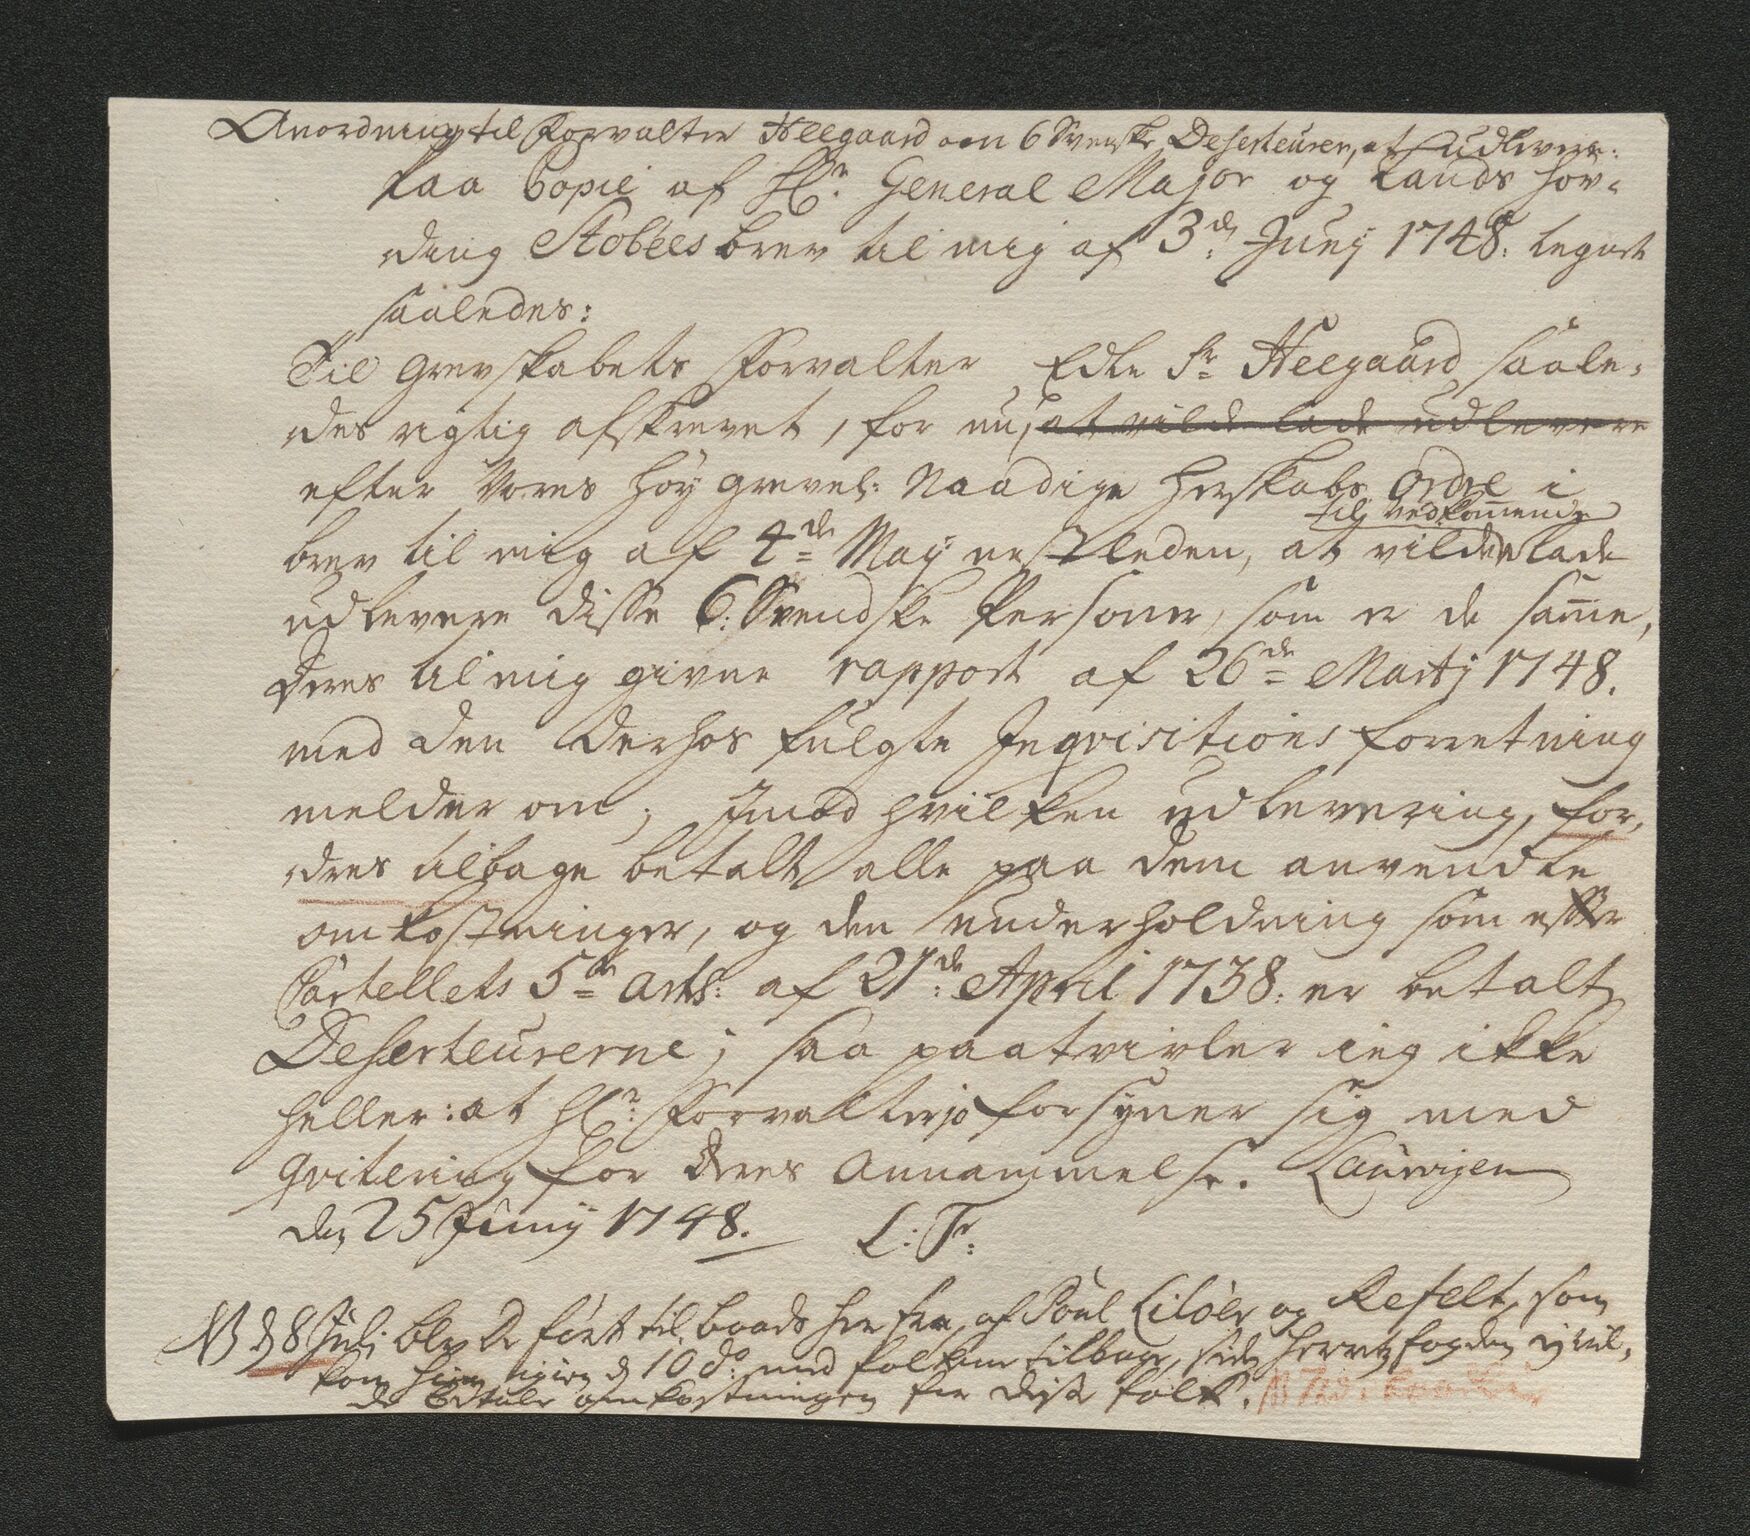 Anordning til Forvalter Heegaard om 6 Svenske Deserteurer, at udlevere:
Paa Copie af Hr: General Major og Lands Høv-
ding Stobées brev til mig af 3de Junij 1748: tegnet
saaledes:
Til Grevskabets Forvalter Edle Sr Heegaard saale-
des rigtig afskrevet, for nu, at vilde lade udlevere
efter Vores Høy Grevel: Naadige Herskabs Ordre i
til vedkommende
brev til mig af 4de Maij nestleden, at vilde lade
udlevere disse 6: Svendske Personer, som er de samme,
Deres til mig givne rapport af 26de Martij 1748.
med den derhos fulgte Inqvisitions forretning
melder om; Imod hvilken udlevering, for-
dres tilbage betalt alle paa dem anvendte
omkostninger, og den underholdning som efter
Cartellets 5te Art: af 21de April 1738: er betalt
Deserteurerne; saa paatvivler ieg ikke
heller: at Hr: Forvalter jo forsyner sig med
Qvitering for deres Annammelse. Laurvigen
den 25 Junij 1748. L: Tr:
NB d 8 Juli blev de ført til baads her fra, af Poul Liløe og Refelt, som
kom hiem igien d 10 do: med folkene tilbage, siden Herritzfogden ej vil-
de betale omkostningen for disse folk. NB